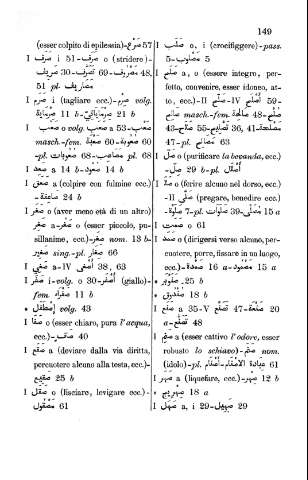 149
(esser colpito di epilessia)-صرع 57
I صرف i 51-صرف o (stridere)-
صريف 30-تصرّف 69-مصروف 48,
51 pl. مصاريف
I صرم i (tagliare ecc.)-صرم volg.
11 b- 21 b
I صعب o volg. صعب a-صعب 53
masch.-fem. صعبة 60-صعوبة 60
-pl. صعوبات-مصاعب 68 pl. 68
I صعد a 14-صعود 14 b
I صعق a (colpire con fulmine ecc.)
-صاعقة 24 b
I صغر o (aver meno età di un altro)
صغر a-صغر o (esser piccolo, pu-
sillanime, ecc.)-صغر nom. 13 b-
صغير sing.-pl. صغار 66
I صغي a-IV اصغى 38, 63
I صفر i-volg. o 30-اصفر (giallo)-
fem. صفراء 11 b
* volg. 43
I صفا o (esser chiaro, pura l'acqua,
ecc.)-صافي 40
I صقع a (deviare dalla via diritta,
percuotere alcuno alla testa, ecc.)-
صقيع 25 b
I صقل o (lisciare, levigare ecc.)-
مصقول 61
I صلب o, i (crocifiggere)-pass.
5-مصلوب 5
I صلح a, o (essere integro, per-
fetto, convenire, esser idoneo, at-
to, ecc.)-II صلّح-IV اصلح 59-
صالح masch.-fem. صالحة 48-صلح
43-صلاح 55-36, 41-مصلحة
47-pl. مصالح 63
I صلّ o (purificare la bevanda, ecc.)
-صلّ 29 b-pl. أصلال
I صلا o (ferire alcuno nel dorso, ecc.)
-II صلّى (pregare, benedire ecc.)
-صلوة 7-pl. صلوات 39- 15 a
I صمت o 61
I صمد o (dirigersi verso alcuno, per-
cuotere, porre, fissare in un luogo,
ecc.)- 16 a- 15 a
* صنوبر 25 b
* صندوق 18 b
I صنع a 35-V تصنّع 47-صنعة 20
a-صنع 48
I صنم a (esser cattivo l'odore, esser
robusto lo schiavo)-صنم nom.
(idolo)-pl. أصنام- 61
I صهر a (liquefare, ecc.)-صهر 12 b
* صهريج 18 a
I صهل a, i 29-صهيل 29